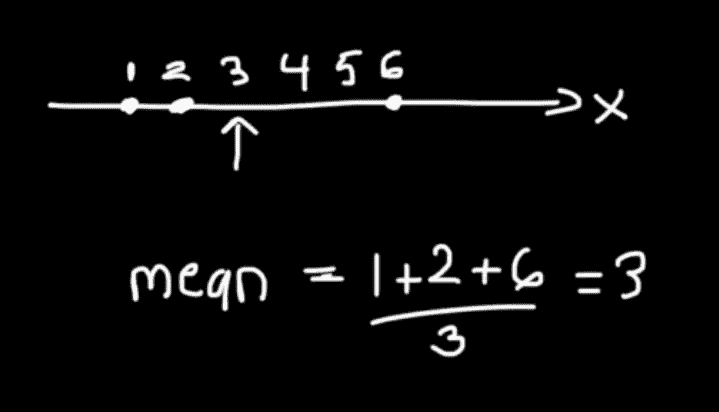 1 2 3 4 5 6
x
mean = 1+2+6 = 3
3